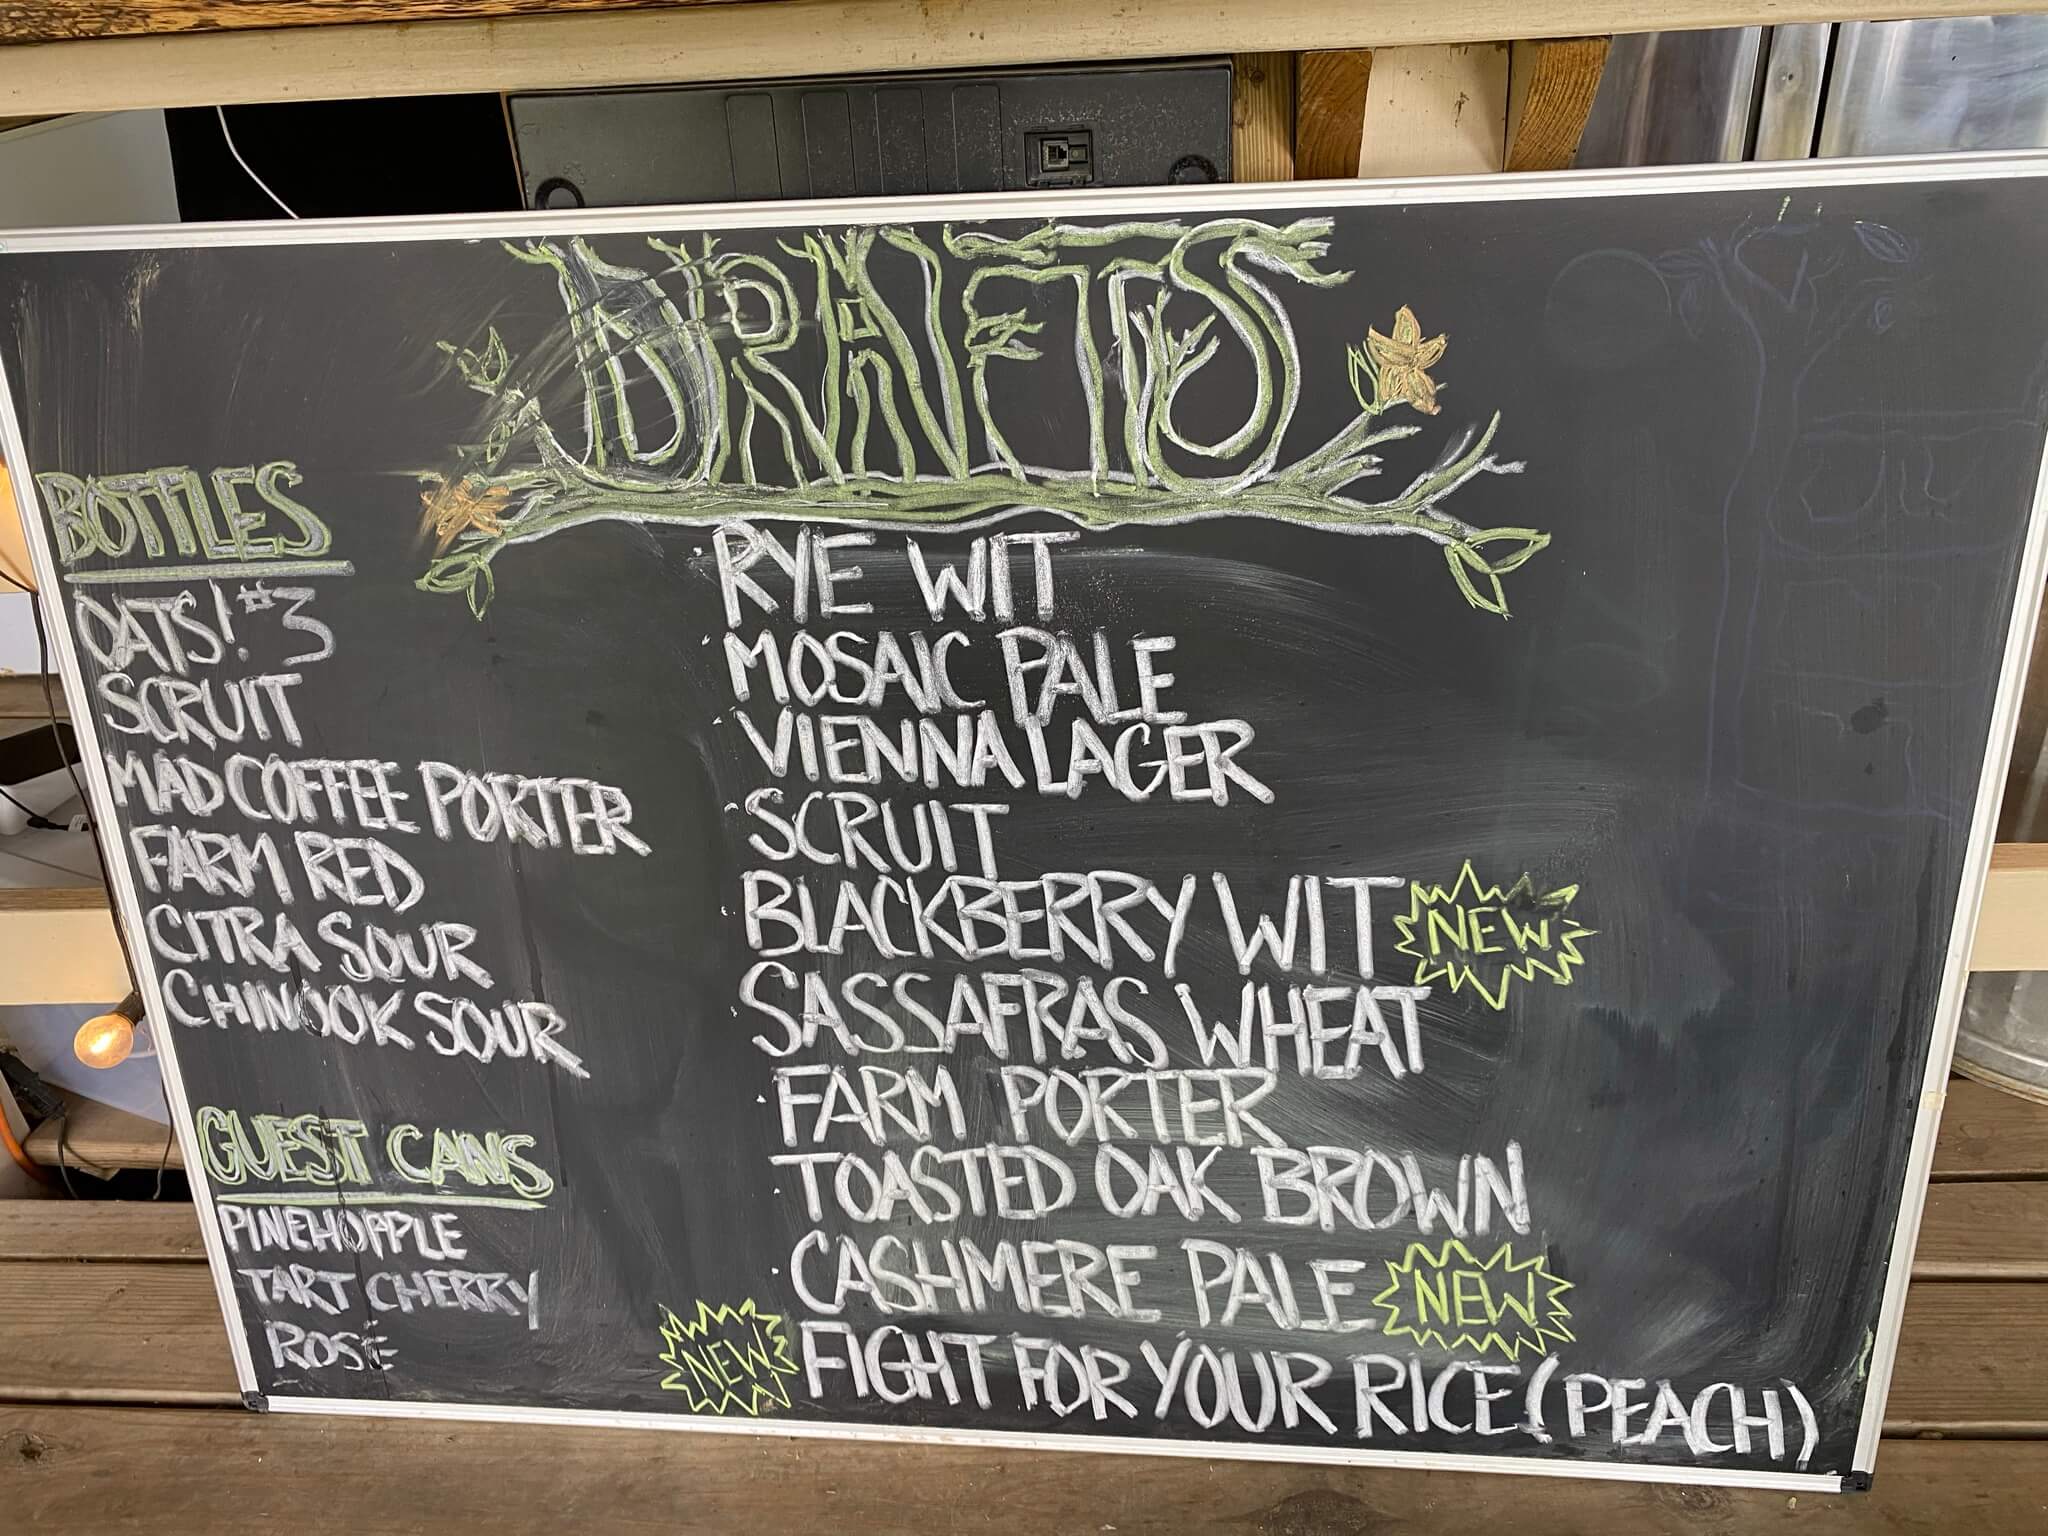 DRAFTS
BOTTLES
OATS! #3
SCRUIT
MAD COFFEE PORTER
FARM RED
CITRA SOUR
CHINOOK SOUR
GUEST CANS
PINEHOPPLE
TART CHERRY
ROSÉ
RYE WIT
MOSAIC PALE
VIENNA LAGER
SCRUIT
BLACKBERRY WIT NEW
SASSAFRAS WHEAT
FARM PORTER
TOASTED OAK BROWN
CASHMERE PALE NEW
NEW FIGHT FOR YOUR RICE (PEACH)